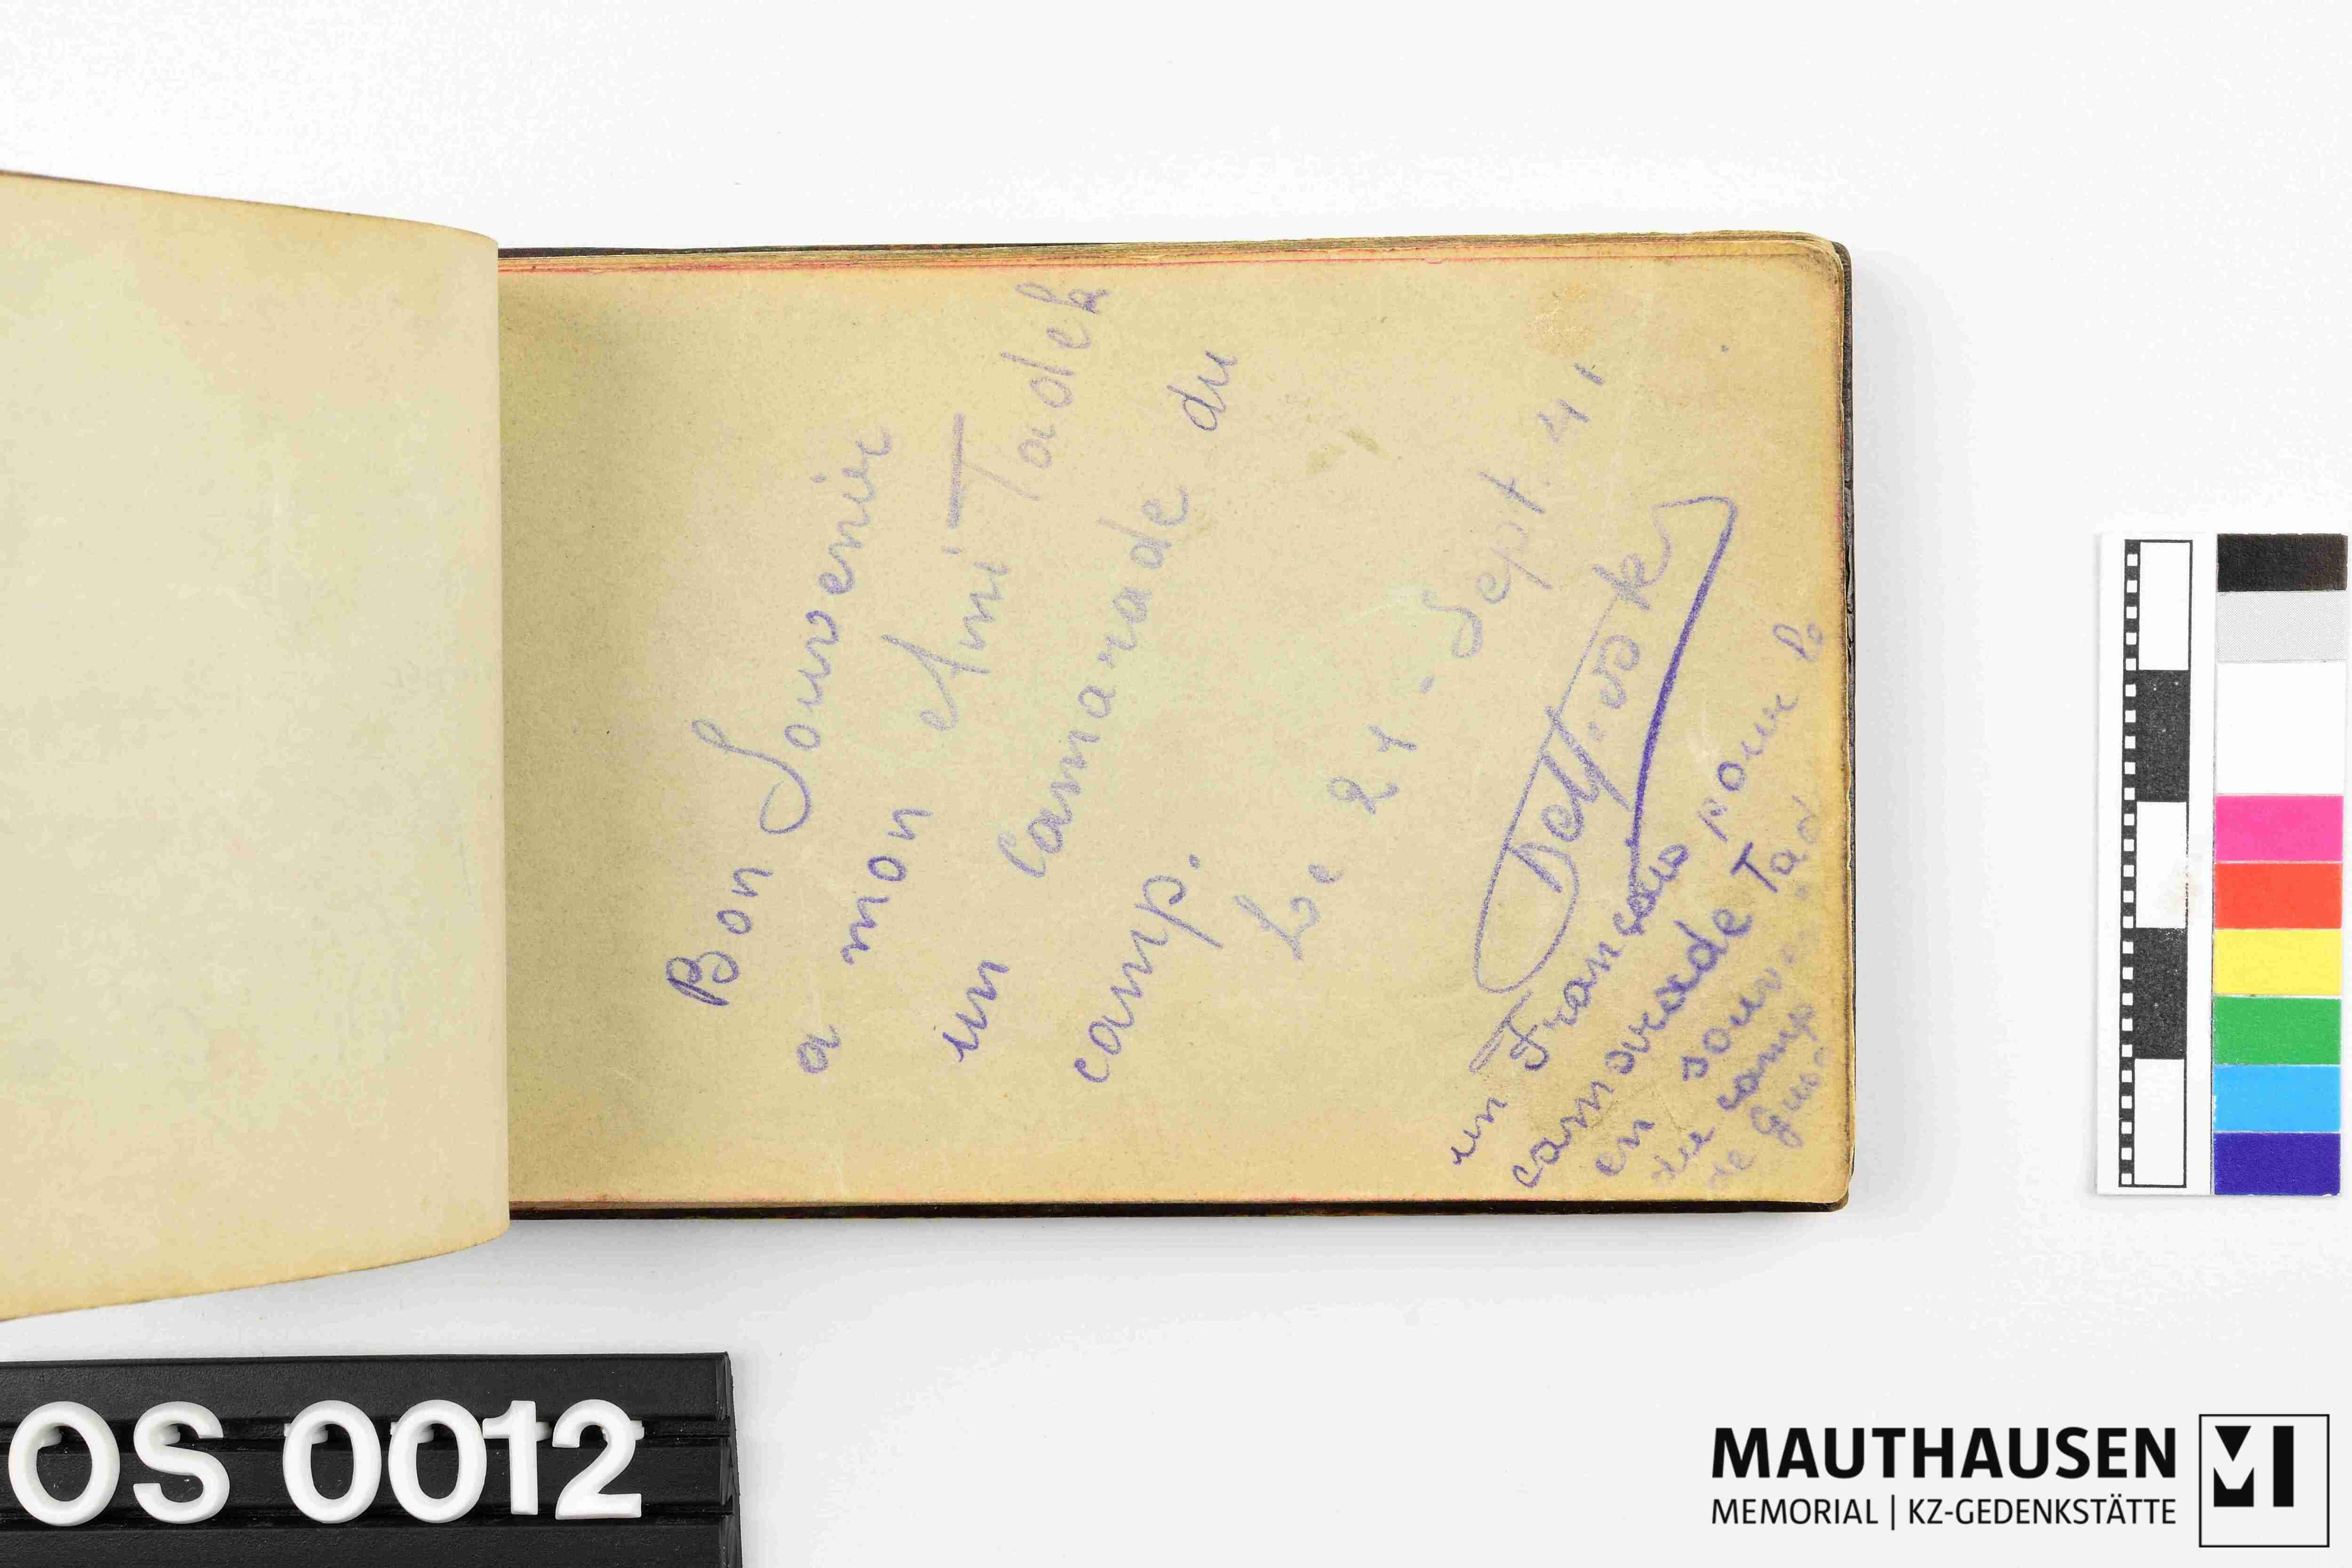 Bon Souvenir
a mon Ami Tadek
un Camarade du
camp.
Le 21 - Sept. 41
un Français pour
camarade Tad
en
du camp
de
OS 0012
MAUTHAUSEN
MEMORIAL | KZ-GEDENKSTÄTTE